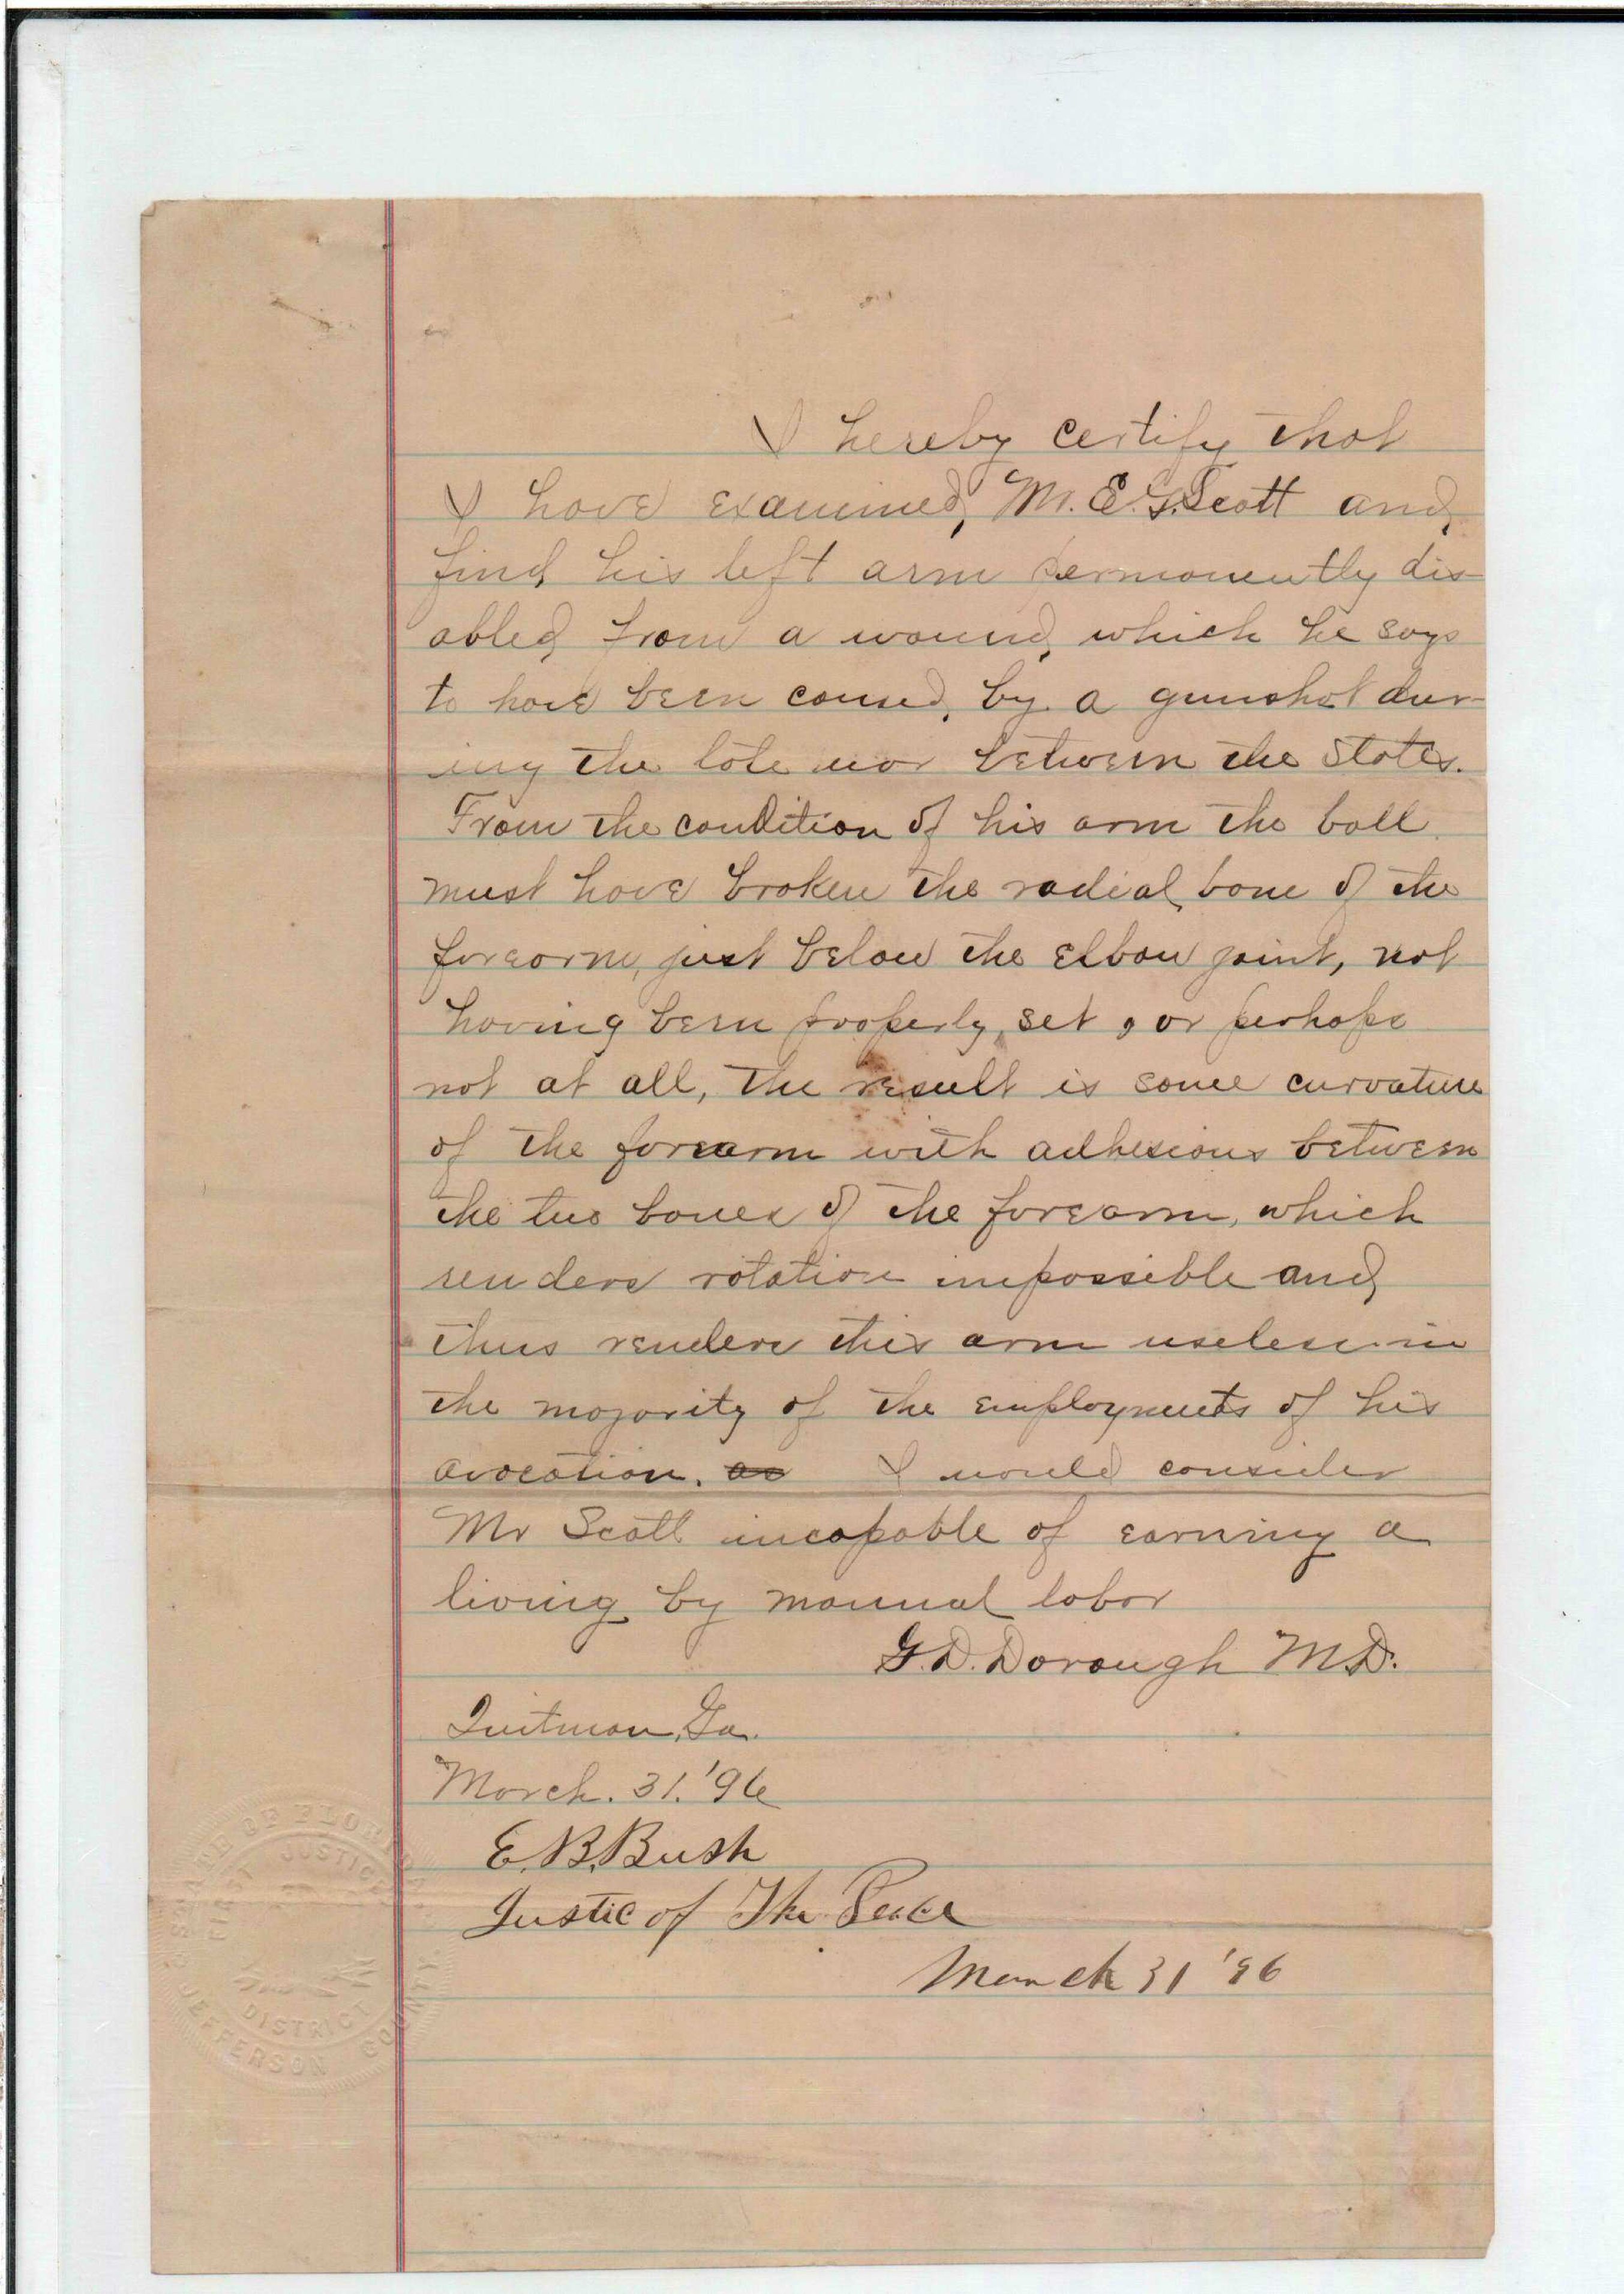 I hereby certify that
I have examined, M. E. G. Scott and
find his left arm permanently dis-
abled from a wound, which he says
to have been caused, by a gunshot dur-
ing the late war between the States.
From the condition of his arm the ball
must have broken the radial bone of the
forearm, just below the elbow joint, not
having been properly set, or perhaps
not at all, the result is some curvature
of the forearm with adhesions between
the two bones of the forearm, which
renders rotation impossible and
thus renders this arm useless in
the majority of the employments of his
avocation. as I would consider
Mr Scott incapable of earning a
living by manual labor
G. D. Dorough M.D.
Quitman, Ga.
March. 31. '96
E. B. Bush
Justic of The Peace
March 31 '96
STATE OF FLORIDA
FIRST JUSTICE
DISTRICT
JEFFERSON COUNTY